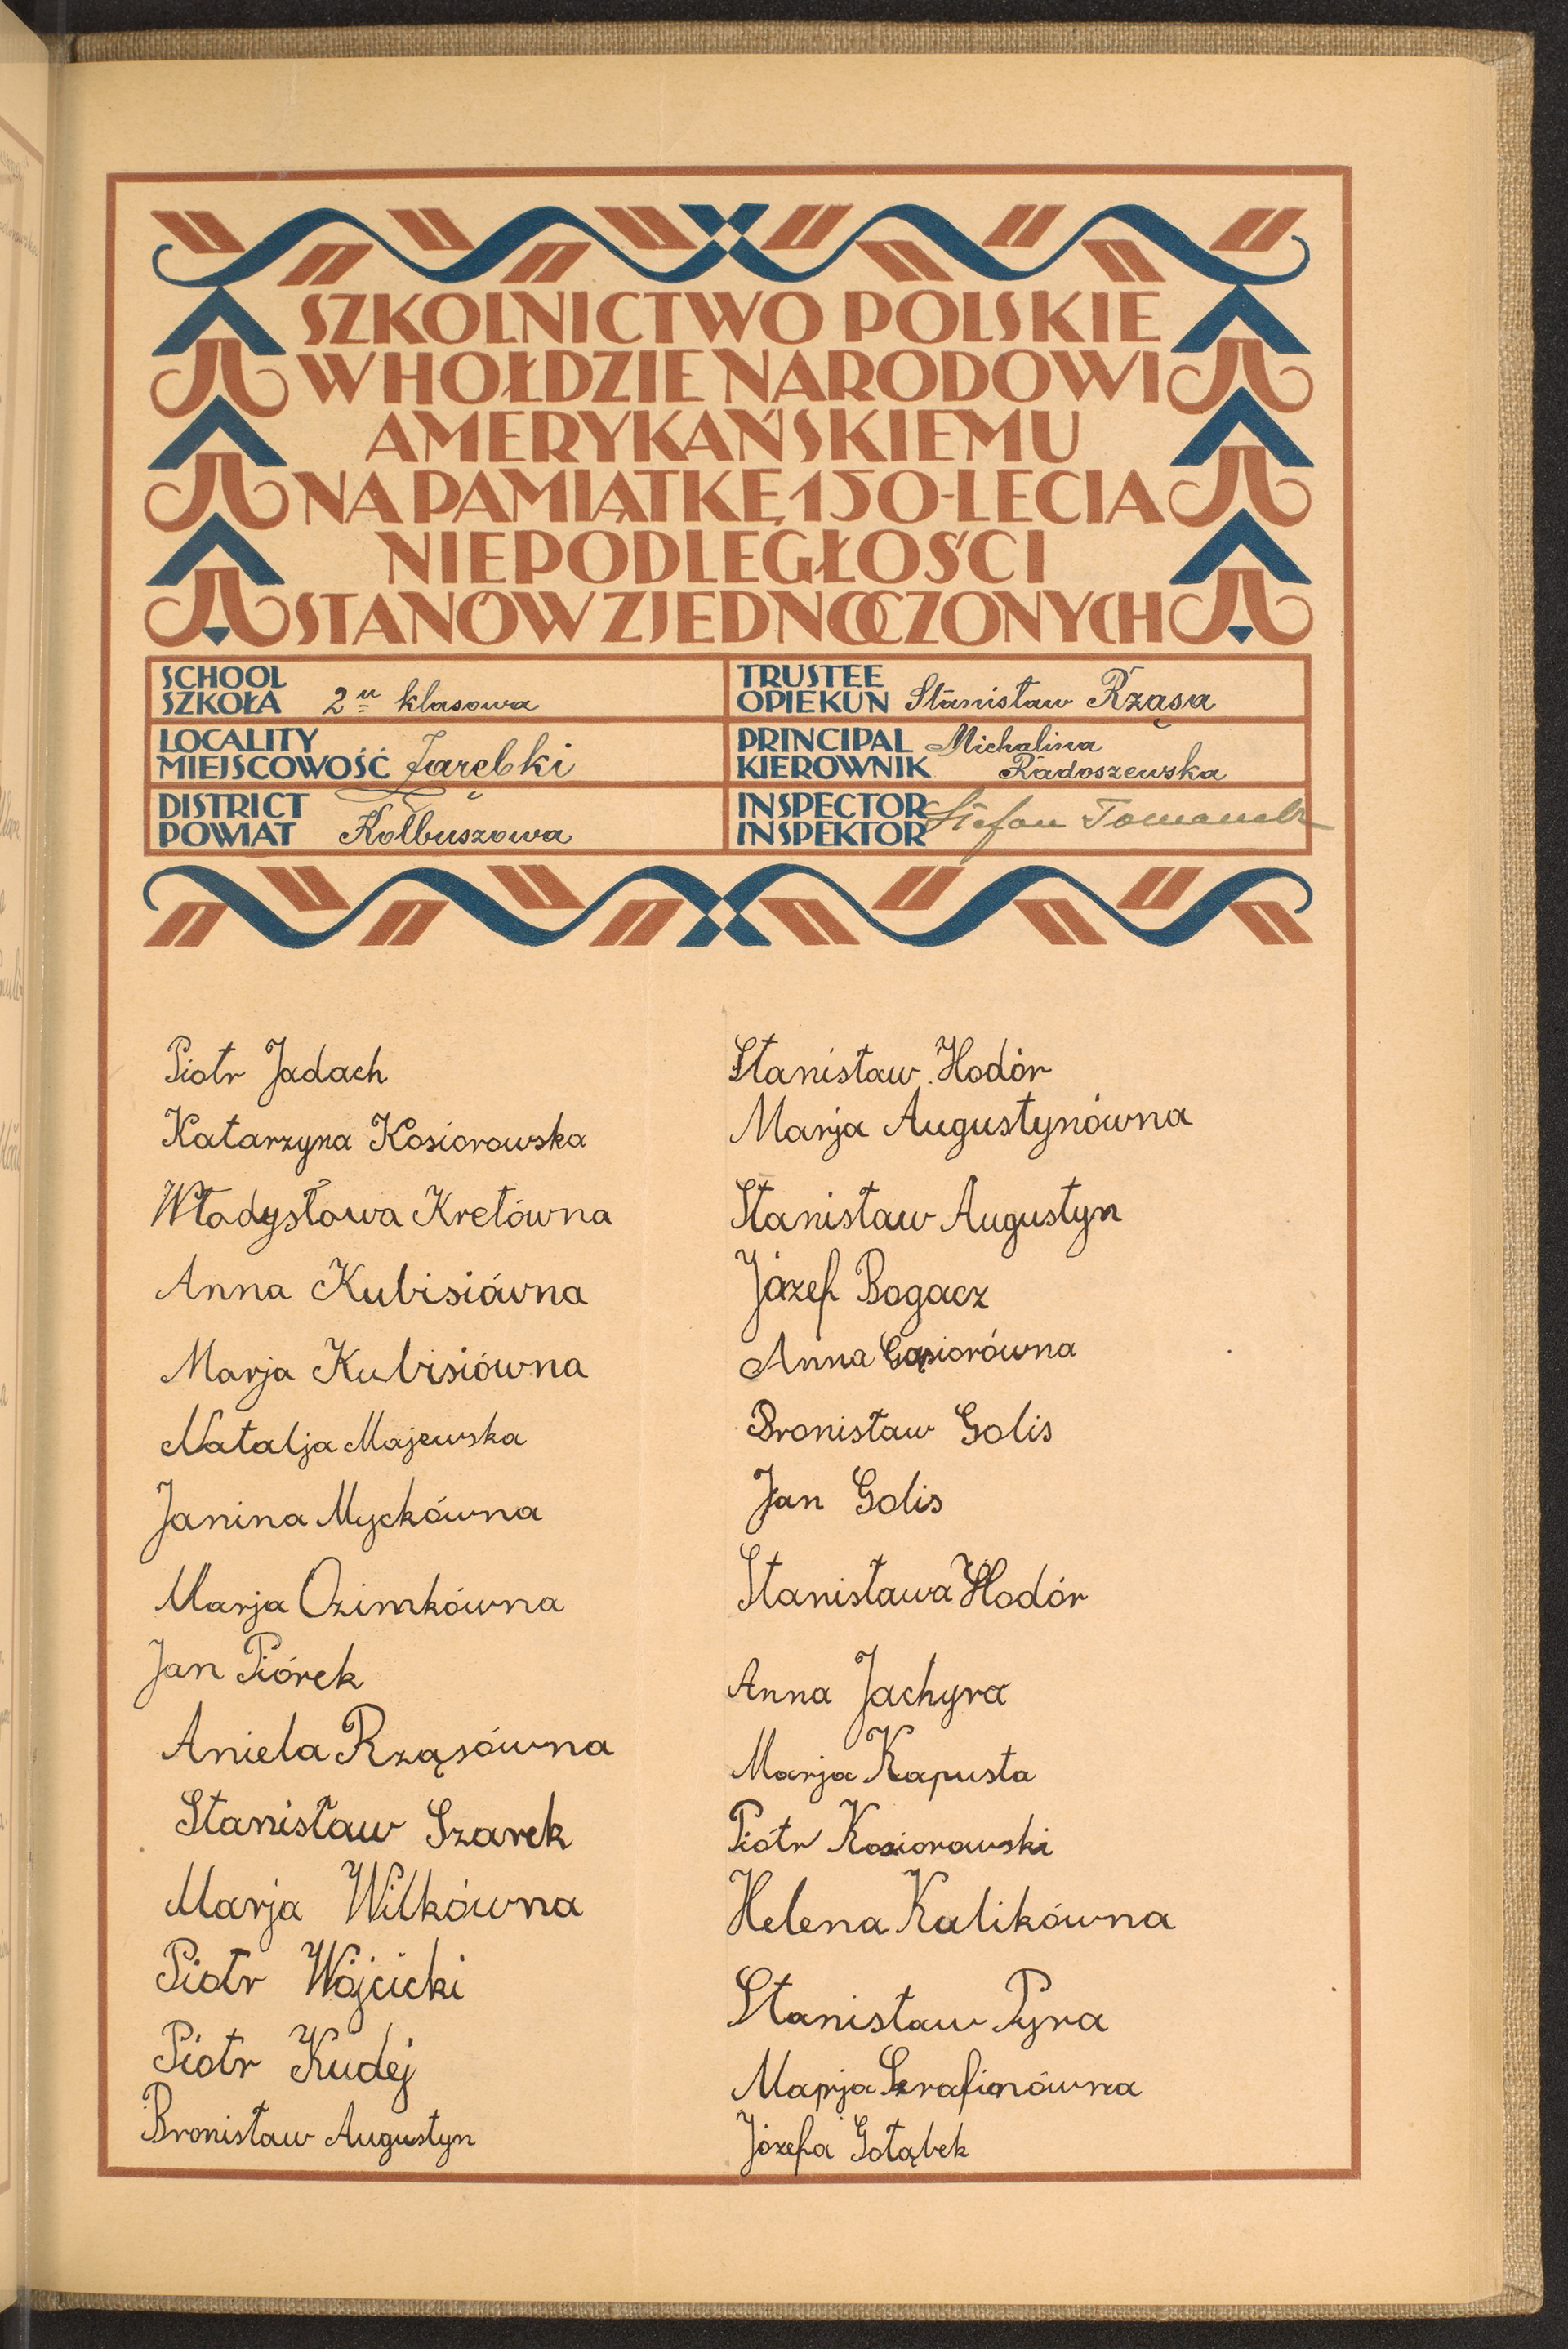 SZKOLNICTWO POLSKIE
W HOŁDZIE NARODOWI
AMERYKAŃSKIEMU
NA PAMIĄTKĘ 150-LECIA
NIEPODLEGŁOŚCI
STANÓW ZJEDNOCZONYCH
SCHOOL
SZKOŁA 2 u klasowa
LOCALITY
MIEJSCOWOŚĆ Zarębki
DISTRICT
POWIAT Kolbuszowa
TRUSTEE
OPIEKUN Stanisław Rząsa
PRINCIPAL Michalina
KIEROWNIK Radoszewska
INSPECTOR
INSPEKTOR Stefan Tomanek
Piotr Jadach
Katarzyna Kosiorowska
Władysława Kretówna
Anna Kubisiówna
Marja Kubisiówna
Natalja Majewska
Janina Myckówna
Marja Ozimkówna
Jan Piórek
Aniela Rząsówna
Stanisław Szarek
Marja Wilkówna
Piotr Wójcicki
Piotr Kudej
Bronisław Augustyn
Stanisław Hodór
Marja Augustynówna
Stanisław Augustyn
Józef Bogacz
Anna Gąsiorówna
Bronisław Golis
Jan Golis
Stanisława Hodór
Anna Jachyra
Marja Kapusta
Piótr Kosiorowski
Helena Kalikówna
Stanisław Pyra
Marja Serafinówna
Józefa Gołąbek